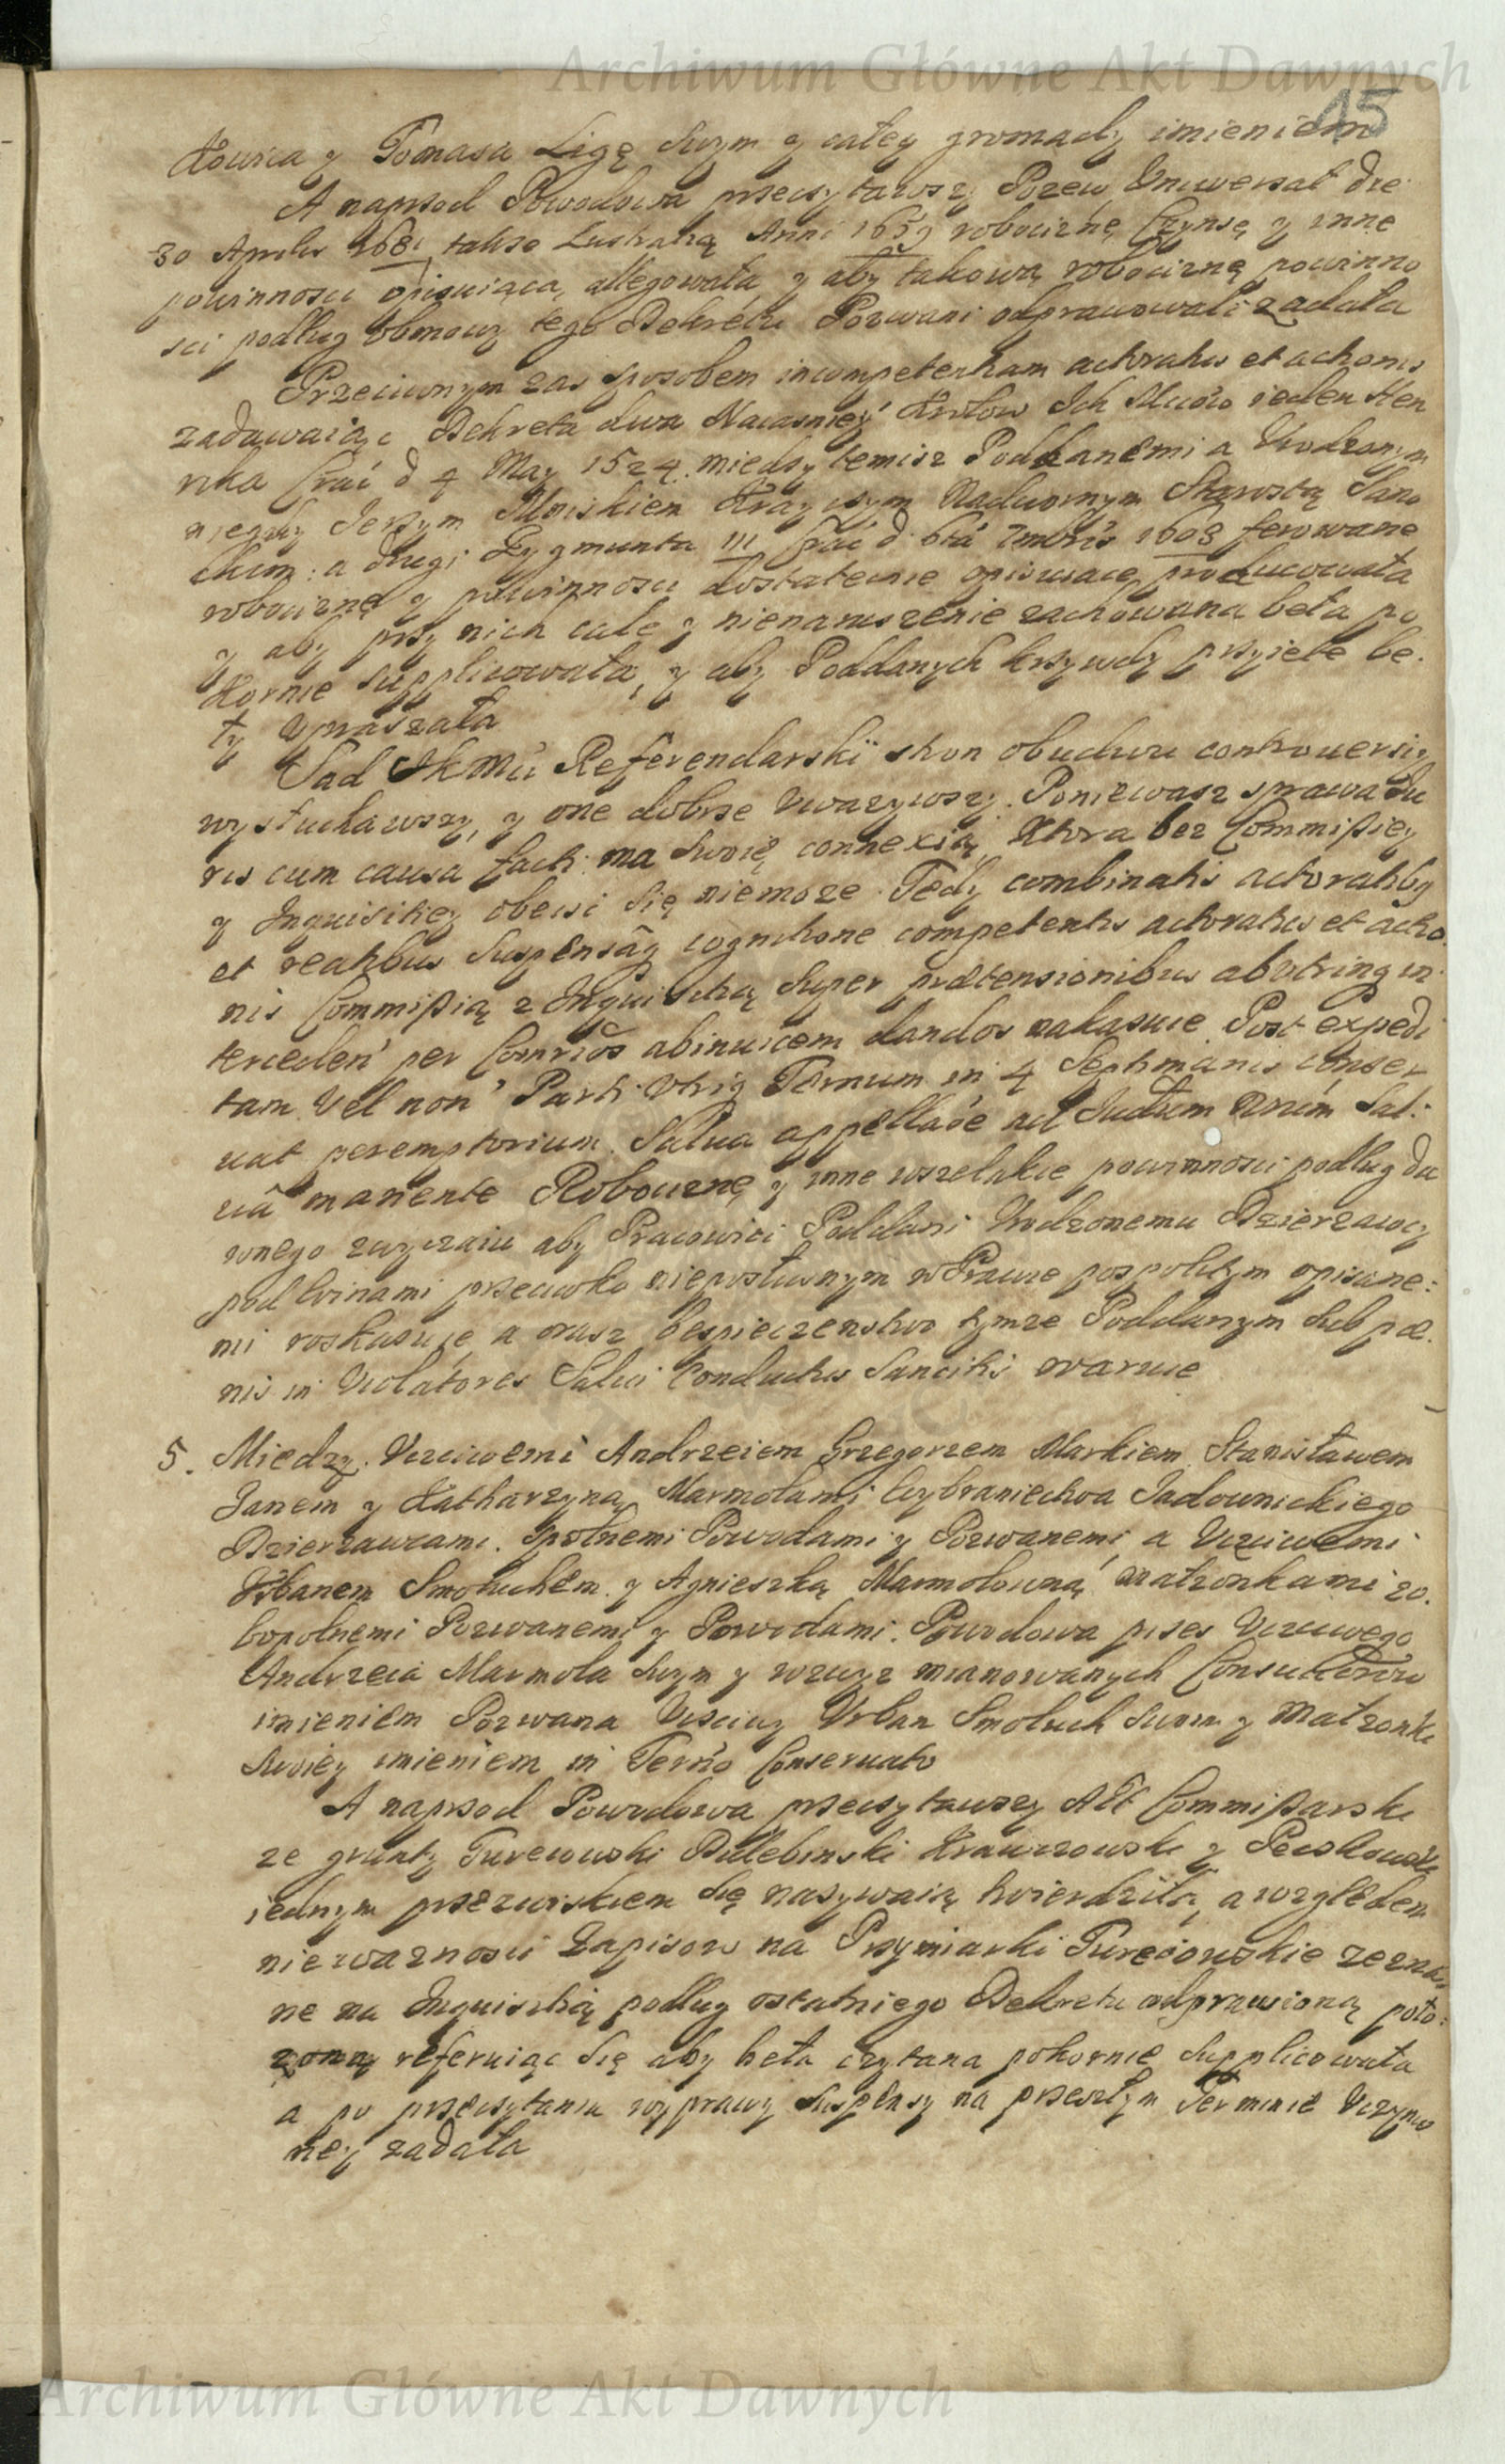 Archiwum Główne Akt Dawnych
15
Kowica y Tomasa Ligę swym y całey gromady imieniem
A naprzod Powodowa przeczytawszy Pozew Uniwersał die
30 Aprilis 1681 takze Lustratią Anni 1659 robociznę Czynsę y inne
powinnosci opisuiąca, allegowała y aby takową robociznę powinno
sci podług obmowy tego Dekretu Pozwani odprawowali żądała
Przeciwnym zas sposobem incompetentiam actoratus et actionis
zadawaiąc Dekreta dwa Naiasniey Krolow Ich Mciow ieden Hen
rika Crac d 4 May 1524 miedzy temisz Poddanemi a Urodzonym
niegdy Jerzym Mniskiem Kraycsym Nadwornym Starostą Sano
ckim: a drugi Zygmunta III Crac d 6ta 7mbris 1608 ferowane
robociznę y powinnosci dostatecnie opisuiące producowała
y aby przy nich cale y nienaruszenie zachowana beła po
kornie supplicowała, y aby Poddanych krzywdy przyięte be.
ły upraszała
Sąd JKMci Referendarski stron obudwu controuersiy
wysłuchawszy, y one dobrze uwazywszy. Poniewasz sprawa Iu
ris cum causa facti ma swoię connexią, Ktora bez Commißiey
y Inquisitiey obeisc się niemoze. Tedy combinatis actoratibg
et reatibus suspensâq cognitione competentis actoratus et actio
nis Commißią z Inquisitią super prætensionibus abutring in
terceden per Comrios abinuicem dandos nakazuie Post expedi
tam vel non Parti utriq Ternum in 4 Septimanis conser
uat peremptorium. Salua appellaoe ad Judium Dnim Sal:
uâ manente Robociznę y inne wszelakie powinnosci podług da
wnego zwyczaiu aby Pracowici Poddani Urodzonemu Dzierzawcy
pod winami przeciwko niepostusznym w Prawie pospolitym opisane:
mi roskazuie, a oraz bespieczenstwo tymze Poddanym sub pœ.
nis in Violatores Salui Conductus sancitis waruie
5. Miedzy Uczciwemi Andrzeiem Grzegorzem Markiem Stanisławem
Janem y Katharzyną Marmołami Wybraniectwa Jadownickiego
Dzierzawcami. Spolnemi Powodami y Pozwanemi, a Uczciwemi
Urbanem Smoluchem y Agnieszką Marmolowną małzonkami zo.
bopolnemi Pozwanemi y Powodami. Powodowa przes Uczciwego
Andrzeia Marmola swym y wzwyz mianowanych Consuccorow
imieniem Pozwana Uczciwy Urban Smoluch swym y małzonki
swoiey imieniem in Terno Conseruato
A naprzod Powodowa przeczytawszy Akt Commißarski
ze grunty Turewuski Dulebinski Krawczowski y Peczkowski
iednym przezwiskiem się nazywaią twierdziła, a względem
niewaznosci Zapisow na Przymiarki Tureciowskie zezna
ne na Inquisitią podług ostatniego Dekretu odprawioną poło:
zoną referuiąc się aby beła czytana pokornie supplicowała
a po przeczytaniu wyprawy suspensy na przeszłym Terminie uczynio
ney żądała
Archiwum Główne Akt Dawnych